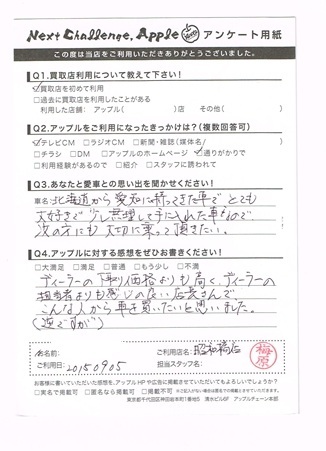 Next Challenge, Apple アンケート用紙
この度は当店をご利用いただきありがとうございました。
Q1.買取店利用について教えて下さい!
☑買取店を初めて利用
□過去に買取店を利用したことがある
利用した店舗:アップル( )店 その他( )
Q2.アップルをご利用になったきっかけは?(複数回答可)
☑テレビCM □ラジオCM □新聞・雑誌(媒体名/ )
□チラシ □DM □アップルのホームページ ☑通りがかりで
□利用経験があるので □紹介 □スタッフに誘われて
Q3.あなたと愛車との思い出を聞かせください!
車名:北海道から愛知に持ってきた車で とても
大好きで少し無理して手に入れた車なので、
次の方にも大切に乗って頂きたい。
Q4.アップルに対する感想をぜひお書きください!
□大満足 □満足 □普通 □もう少し □不満
ディーラーの下取り価格よりも高く、ディーラーの
担当者よりも感じの良い店長さんで、
こんな人から車を買いたいと思いました。
(逆ですが)
お名前: ご利用店名:昭和橋店
ご利用日:20150905 担当スタッフ名: 梅原
お客様に書いていただいた感想を、アップルHPや広告に掲載させていただいてもよろしいでしょうか?
□実名で掲載可 □匿名なら掲載可 □掲載不可
東京都千代田区神田岩本町1番地5 清水ビル6F アップルチェーン本部